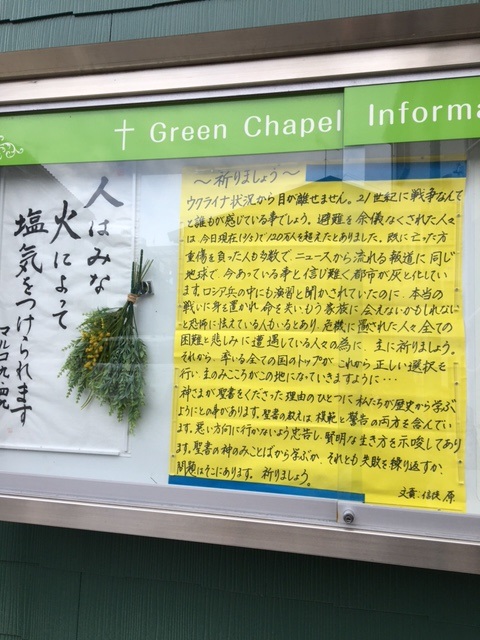 † Green Chapel Informa
人はみな
火によって
塩気をつけられます
マルコ九・四九
〜祈りましょう〜
ウクライナ状況から目が離せません。21世紀に戦争なんて
と誰もが感じている事でしょう。避難を余儀なくされた人々
は、今日現在(3/5)で120万人を超えたとありました。既に亡った方
重傷を負った人も多数で、ニュースから流れる報道に同じ
地球で、今あっている事と信じ難く都市が灰と化してい
ます。ロシア兵の中にも演習と聞かされていたのに、本当の
戦いに身を置かれ命を失いもう家族に会えないかもしれない
と恐怖に怯えている人もいるとあり、危機に隠された人々、全ての
困難と悲しみに遭遇している人々の為に、主に祈りましょう。
それから、率いる全ての国のトップが、これから正しい選択を
行い、主のみこころがこの地になっていきますように…
神さまが聖書をくださった理由のひとつに、私たちが歴史から学ぶ
ようにとの事があります。聖書の教えは、模範と警告の両方を含んでい
ます。悪い方向に行かないよう忠告し、賢明な生き方を示唆してあり
ます。聖書の神のみことばから学ぶか、それとも失敗を繰り返すか、
問題はそこにあります。祈りましょう。
文責:信徒 原